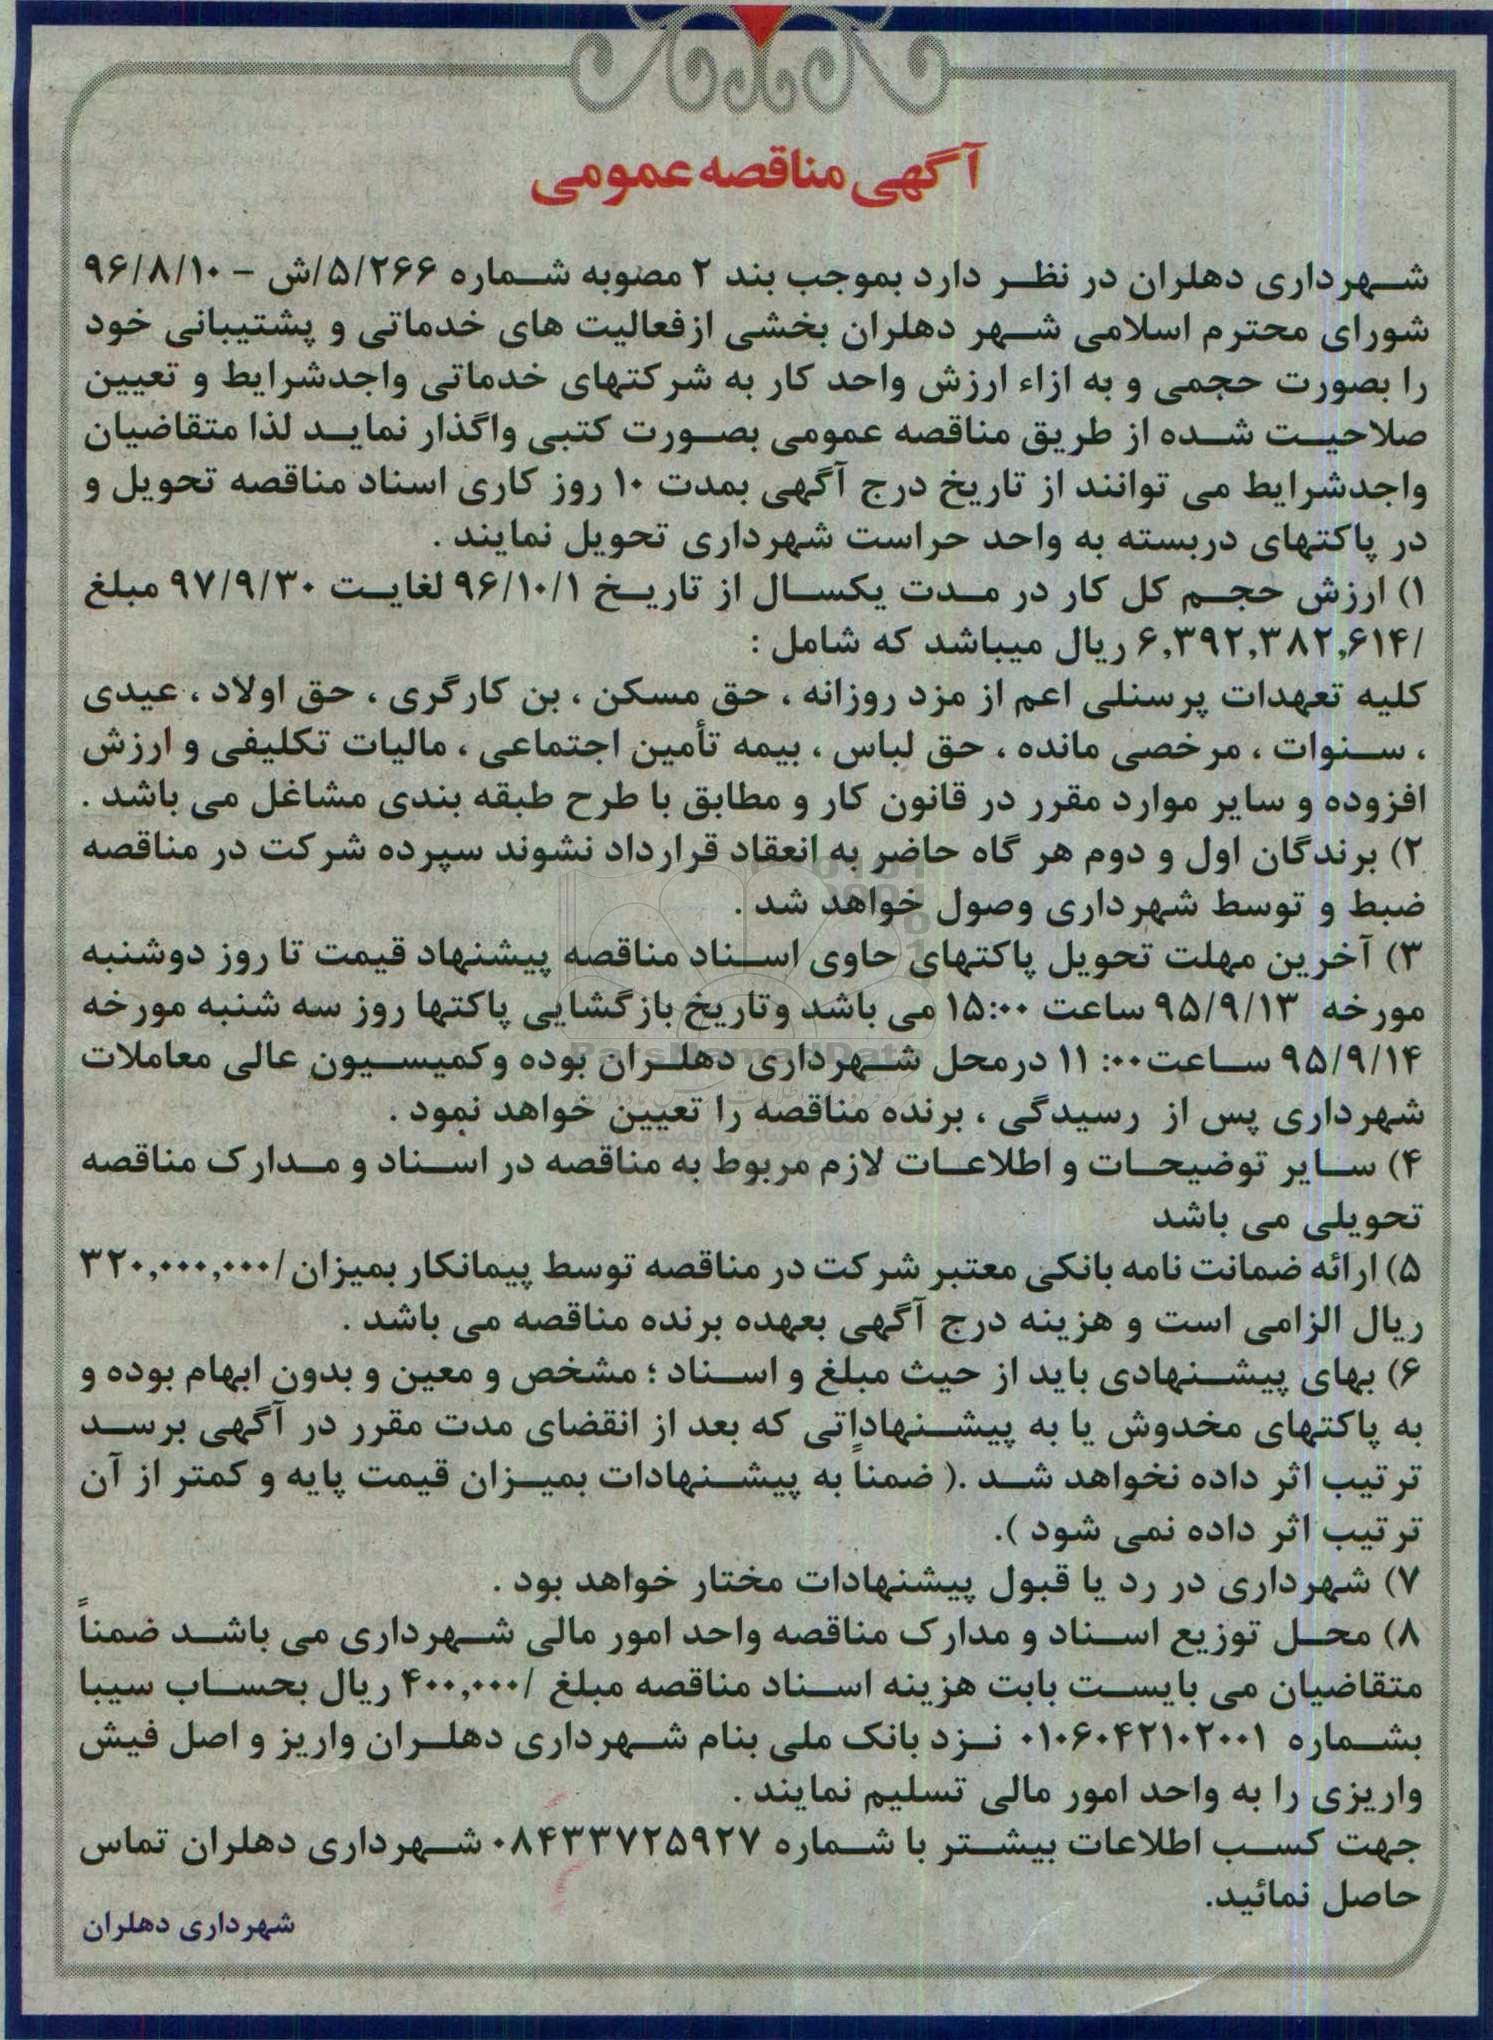 آگهی مناقصه عمومی
شهرداری دهلران در نظر دارد بموجب بند ۲ مصوبه شماره ۵/۲۶۶/ش – ۹۶/۸/۱۰
شورای محترم اسلامی شهر دهلران بخشی ازفعالیت های خدماتی و پشتیبانی خود
را بصورت حجمی و به ازاء ارزش واحد کار به شرکتهای خدماتی واجدشرایط و تعیین
صلاحیت شده از طریق مناقصه عمومی بصورت کتبی واگذار نماید لذا متقاضیان
واجدشرایط می توانند از تاریخ درج آگهی بمدت ۱۰ روز کاری اسناد مناقصه تحویل و
در پاکتهای دربسته به واحد حراست شهرداری تحویل نمایند .
۱) ارزش حجم کل کار در مدت یکسال از تاریخ ۹۶/۱۰/۱ لغایت ۹۷/۹/۳۰ مبلغ
/۶,۳۹۲,۳۸۲,۶۱۴ ریال میباشد که شامل :
کلیه تعهدات پرسنلی اعم از مزد روزانه ، حق مسکن ، بن کارگری ، حق اولاد ، عیدی
، سنوات ، مرخصی مانده ، حق لباس ، بیمه تأمین اجتماعی ، مالیات تکلیفی و ارزش
افزوده و سایر موارد مقرر در قانون کار و مطابق با طرح طبقه بندی مشاغل می باشد .
۲) برندگان اول و دوم هر گاه حاضر به انعقاد قرارداد نشوند سپرده شرکت در مناقصه
ضبط و توسط شهرداری وصول خواهد شد .
۳) آخرین مهلت تحویل پاکتهای حاوی اسناد مناقصه پیشنهاد قیمت تا روز دوشنبه
مورخه ۹۵/۹/۱۳ ساعت ۱۵:۰۰ می باشد وتاریخ بازگشایی پاکتها روز سه شنبه مورخه
۹۵/۹/۱۴ ساعت۱۱:۰۰ درمحل شهرداری دهلران بوده وکمیسیون عالی معاملات
ParsNamadData
شهرداری پس از رسیدگی ، برنده مناقصه را تعیین خواهد نمود .
۴) سایر توضیحات و اطلاعات لازم مربوط به مناقصه در اسناد و مدارک مناقصه
تحویلی می باشد
۵) ارائه ضمانت نامه بانکی معتبر شرکت در مناقصه توسط پیمانکار بمیزان/۳۲۰,۰۰۰,۰۰۰
ریال الزامی است و هزینه درج آگهی بعهده برنده مناقصه می باشد .
۶) بهای پیشنهادی باید از حیث مبلغ و اسناد ؛ مشخص و معین و بدون ابهام بوده و
به پاکتهای مخدوش یا به پیشنهاداتی که بعد از انقضای مدت مقرر در آگهی برسد
ترتیب اثر داده نخواهد شد .( ضمناً به پیشنهادات بمیزان قیمت پایه و کمتر از آن
ترتیب اثر داده نمی شود ).
۷) شهرداری در رد یا قبول پیشنهادات مختار خواهد بود .
۸) محل توزیع اسناد و مدارک مناقصه واحد امور مالی شهرداری می باشد ضمناً
متقاضیان می بایست بابت هزینه اسناد مناقصه مبلغ /۴۰۰,۰۰۰ ریال بحساب سیبا
بشماره ۰۱۰۶۰۴۲۱۰۲۰۰۱ نزد بانک ملی بنام شهرداری دهلران واریز و اصل فیش
واریزی را به واحد امور مالی تسلیم نمایند .
جهت کسب اطلاعات بیشتر با شماره ۰۸۴۳۳۷۲۵۹۲۷ شهرداری دهلران تماس
حاصل نمائید.
شهرداری دهلران